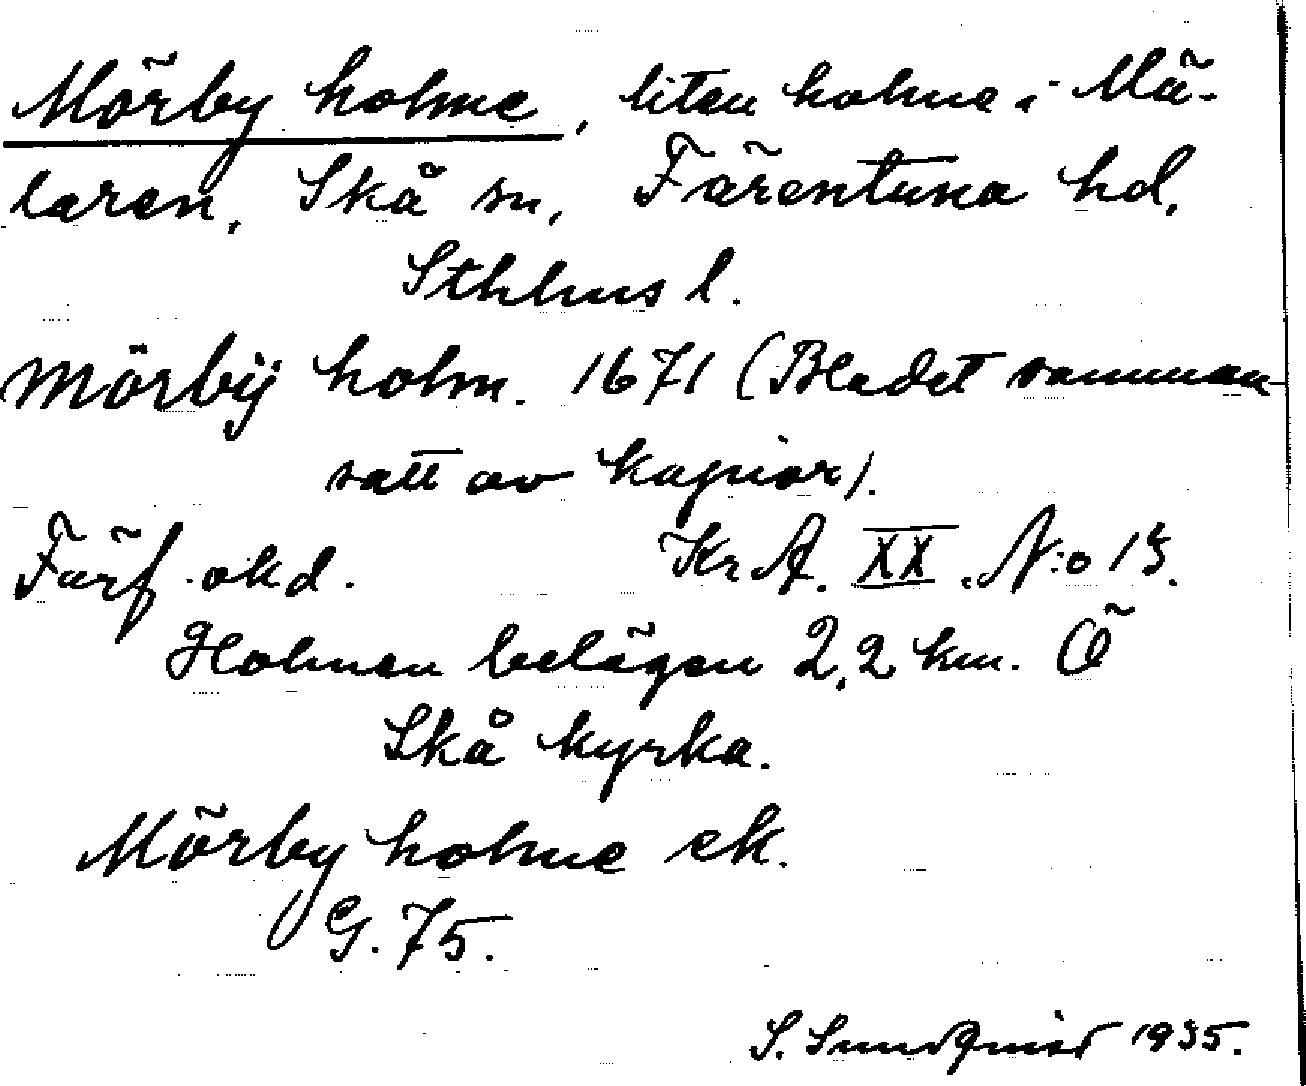 Mörby holme, liten holme i Mä-
laren, Skå sn, Färentuna hd,
Sthlms l.
Mörbÿ holm. 1671 (Bladet samman-
satt av kopior).
Förf. okd. KrA. XX. N:o 13.
Holmen belägen 2,2 km. Ö
Skå kyrka.
Mörby holme ek.
G. 75.
S. Sundqvist 1935.